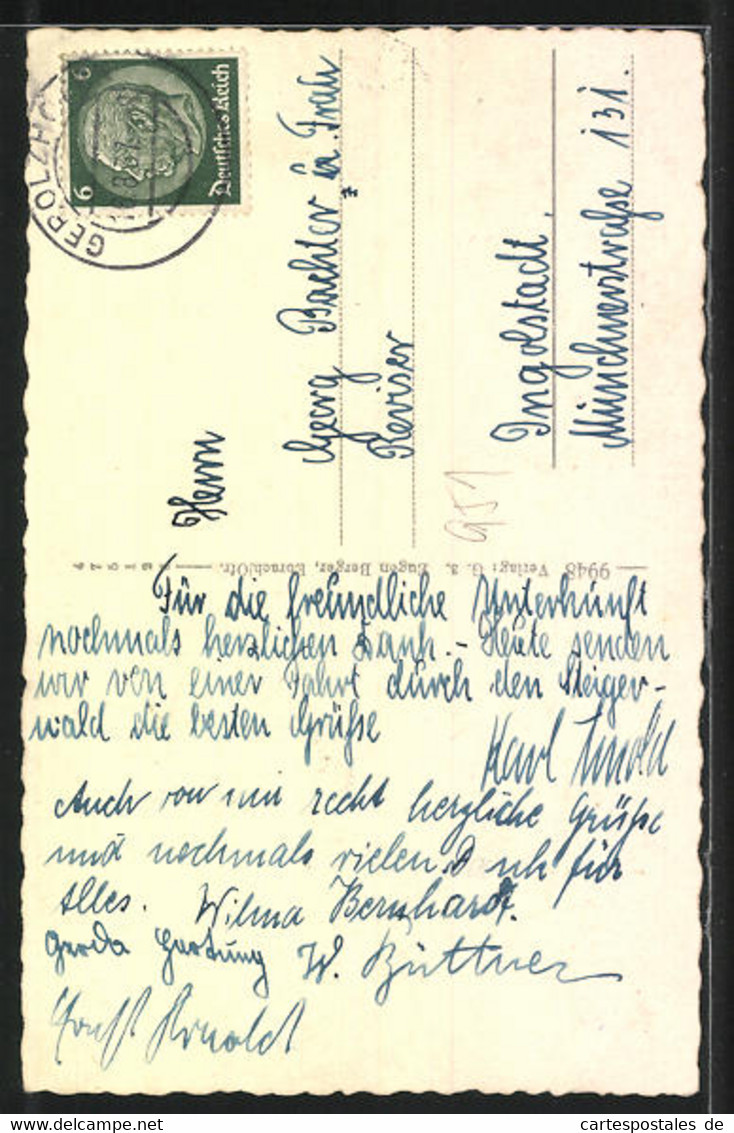 GEROLZHO
6 6
Deutsches Reich
Herrn
Georg Bachter u. Frau
Reviser
Ingolstadt,
Münchnerstraße 131.
951
9948 Verlag: G. & Eugen Berger,
Für die freundliche Unterkunft
nochmals herzlichen Dank. - Heute senden
wir von einer Fahrt durch den Steiger-
wald die besten Grüße
Karl Arnold
Auch von mir recht herzliche Grüße
und nochmals vielen für
Alles. Wilma Bernhardt.
Gerda Hartung W. Büttner
Ernst Arnold
cartespostales de